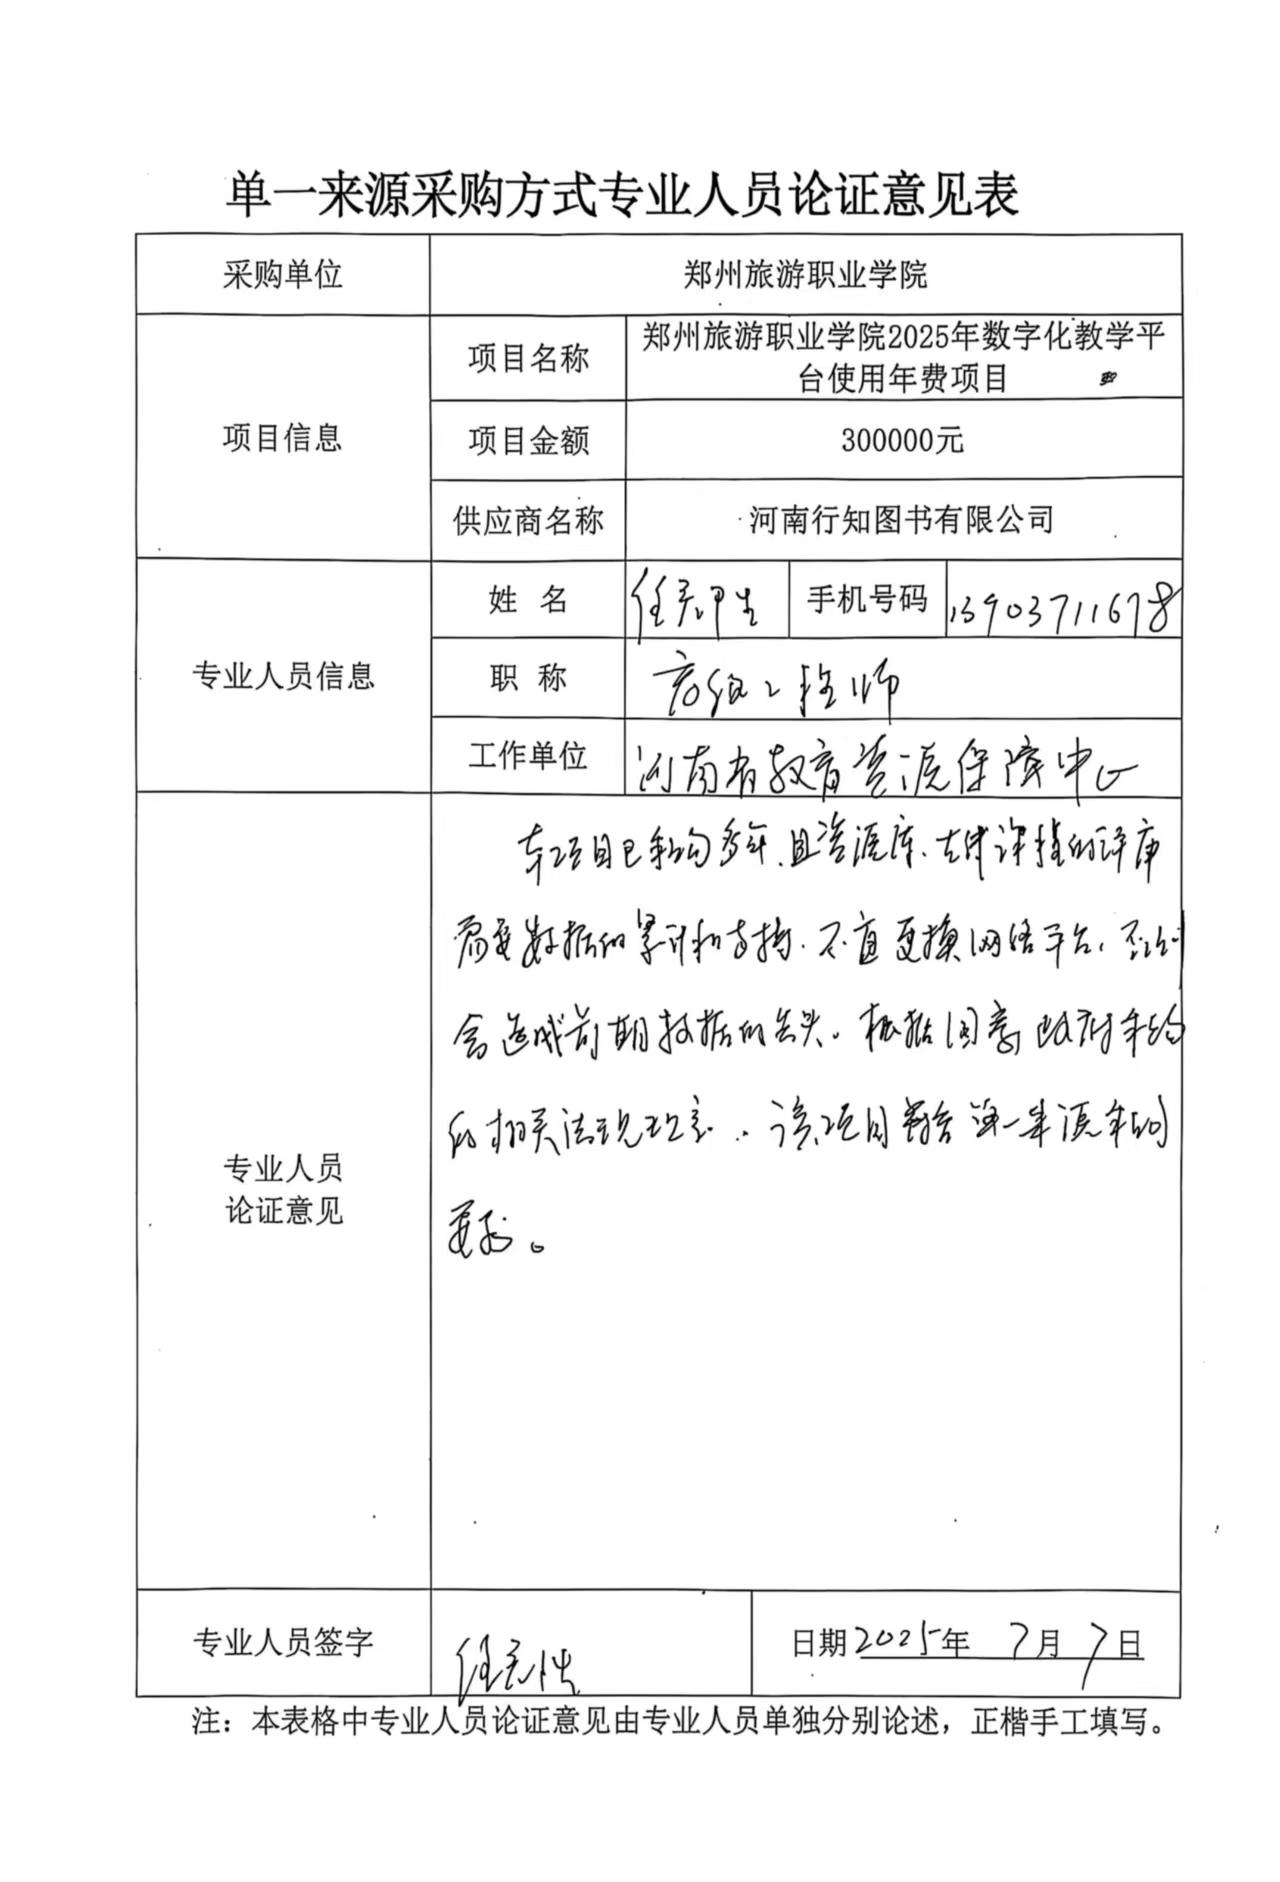 单一来源采购方式专业人员论证意见表
采购单位 郑州旅游职业学院
项目信息
项目名称 郑州旅游职业学院2025年数字化教学平
台使用年费项目
项目金额 300000元
供应商名称 河南行知图书有限公司
专业人员信息
姓 名 任 手机号码 13903711678
职 称 高级工程师
工作单位 河南省教育资源保障中心
专业人员
论证意见
本项目已采购多年,且资源库、在线课程的评审
需要数据的累计和支持,不宜更换网络平台,否则
会造成前期数据的丢失。根据国家政府采购
的相关法规规定,该项目符合单一来源采购
要求。
专业人员签字 任 日期2025年 7月7日
注:本表格中专业人员论证意见由专业人员单独分别论述,正楷手工填写。